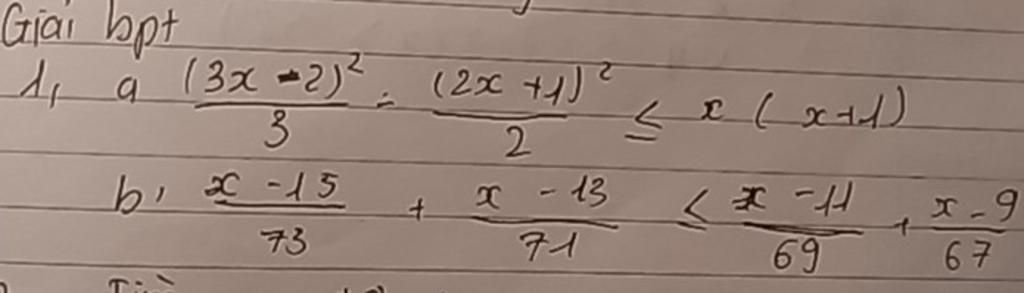 Giải bpt
1, a (3x - 2)²/3 - (2x + 1)²/2 ≤ x ( x+1)
b, x - 15/73 + x - 13/71 < x - 11/69 + x - 9/67